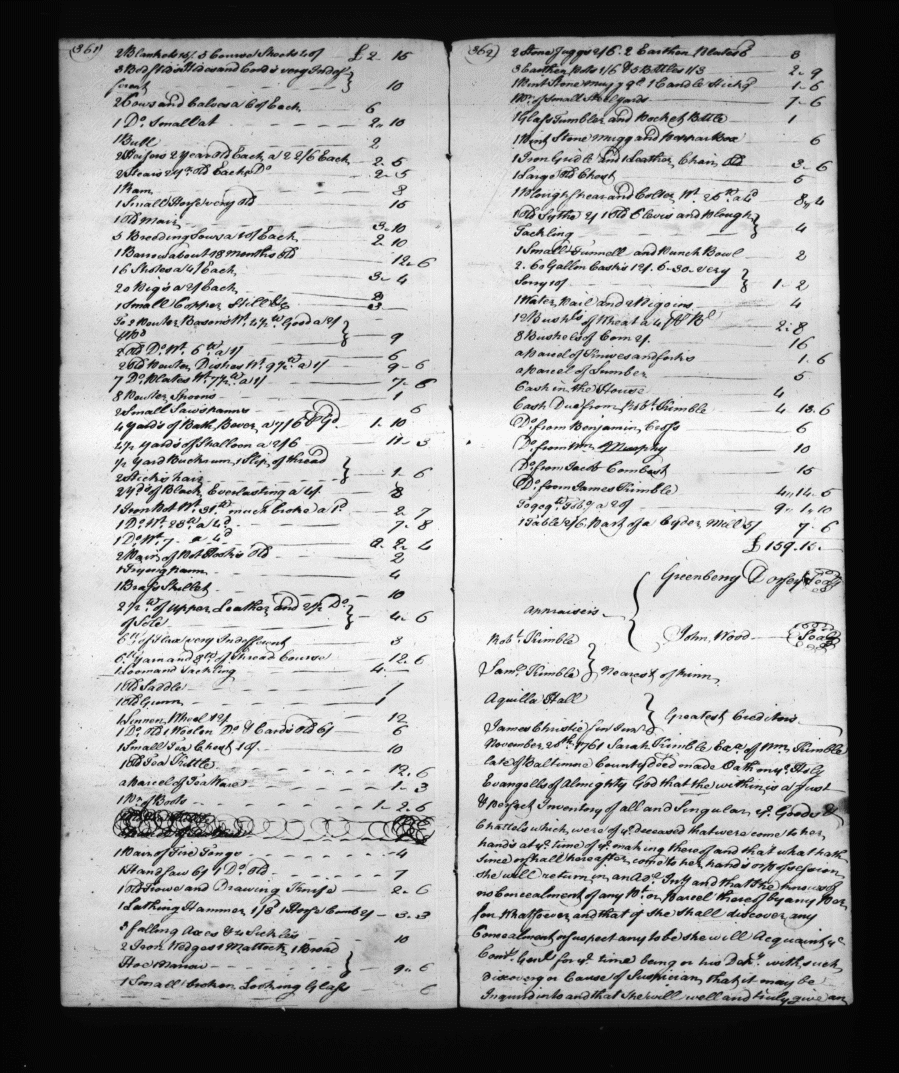 (361)
2 Blankets 15/. 3 Course Sheets 40/ £ 2 - 15
3 Bedsteads Hides and Cords very Indif
ferent } 10
2 Cows and Calves a 60/ Each 6
1 Do. Small at 2 - 10
1 Bull 2
2 Heifers 2 year old Each a 22/6 Each 2 - 5
2 Steers 2 yr. old Each Do. 2 - 5
1 Ram 8
1 Small Horse very old 15
1 old Mair 3 - 10
5 Breeding Sows a 10/ Each 2 - 10
1 Barrow about 18 months old 12 - 6
16 Shotes a 4/ Each 3 - 4
20 Pigs a 2/ Each
1 Small Copper Still &c
To 2 Pewter Basons Wt. 4 1/2 w Good a 2/
} 9
2 old Do. Wt. 6 w a 1/ 6
2 old Pewter Dishes Wt. 9 1/2 w a 1/ 9 - 6
7 Do. Plates Wt. 7 1/2 w a 1/ 7 - 6
8 Pewter Spoons 1
2 Small Sawspanns 6
4 yards of Bath Bever a 7/6 1 - 10
4 1/2 yards of Shalloon a 2/6 11 - 3
1/2 yard Buckram, 1 Slip of thread
2 Sticks hair } 1 - 6
2 yds of Black Everlasting a 4/ 8
1 Iron Pot Wt. 31 w much broke a 1d 2 - 7
1 Do. Wt. 23 w a 4d 7 - 8
1 Do. Wt. 7 a 4d 2 - 4
2 Pair of Pot Hooks old 2
1 Frying pann 4
1 Brass Skillet 10
2 1/2 w of Upper Leather and 2 1/2 Do.
of Sole } 4 - 6
6 w of Flax very Indifferent 3
6 w yarn and 8 w of Thread Course 12 - 6
1 Loom and Tackling 4
1 old Saddle 1
1 old Gunn 1
1 Linnen Wheel 12/ 12
1 Do. old 1 Woolen Do. & Cards old 6/ 6
1 Small Tea Chest 10/ 10
1 old Tea Kittle 12 - 6
a parcel of Tea Ware 1 - 3
1 Pr. of Boots 1 - 2 - 6
1 Pair of Fire Tongs 4
1 Hand saw 6/ 1 Do. old 7
1 old Frowe and Drawing Knife 2 - 6
1 Lathing Hammer 1/3d 1 Horse Comb 2/ 3 - 3
3 falling Axes & 4 Sickles 10
2 Iron Wedges 1 Mattock, 1 Broad
Hoe 1 Narrow } 9 - 6
1 Small broken Looking Glass 6
(362)
2 Stone Juggs 2/6. 2 Earthen Plates 6d 3
3 Earthen Pots 1/6 & 5 Bottles 1/3 2 - 9
1 Flint Stone mug 9d. 1 Candle Stick 9d 1 - 6
1 Pr. of Small Stilyards 7 - 6
1 Glass Tumbler and Pocket Bottle 1
1 Flint Stone Mugg and Pepper Box 6
1 Iron Gridle and 1 Leather Chair old 3 - 6
1 Large old Chest 5
1 Plough shear and Colter Wt. 25 w a 4d 8 - 4
1 old Sythe 2/ 1 old Clevis and Plough
Tackling } 4
1 Small Funnell and Punch Bowl 2
2. 60 Gallon Casks 12/. 6 - 30. very
Sorry 10/ } 1 - 2
1 Water Pail and 2 Pigoins 4
12 Bushls of Wheat a 4/ 2 - 8
8 Bushels of Corn 2/. 16
a parcel of Knives and forks 1 - 6
a parcel of Lumber 5
Cash in the House 4
Cash Due from Robt. Trimble 4 - 13 - 6
Do. from Benjamin Cross 6
Do. from Wm. Murphy 10
Do. from Jacob Combest 15
Do. from James Trimble 4 - 14 - 5
a 20/ 9 - 1 - 10
1 Table 2/6 Part of a Cyder Mill 5/ 7 - 6
£ 159.12
Greenberry Dorsey (Seal)
appraisers {
John Wood (Seal)
Robt. Trimble
Saml. Trimble } Nearest of kinn
Aquilla Hall
James Christie Jun } Greatest Creditors
November 28th 1761 Sarah Trimble Exx. of Wm. Trimble
late of Baltimore County decd made Oath on ye. Holy
Evangells of Almighty God that the within is a Just
& Perfect Inventory of all and Singular ye. Goods &
Chattels which were of ye. deceased that were come to her
hands at ye. time of ye. making thereof and that what hath
Since or shall hereafter come to her hands or possession
she will return in an Adl. Invy and that she knows of
no Concealment of any Pt. or Parcel thereof by any Per
son Whatsoever and that if she shall discover any
Concealment or suspect any to be she will Acquaint ye
Comy Genl for ye. time being or his Depy. with such
Discovery or Cause of Suspician, that it may be
Inquired into and that she will well and truly give an